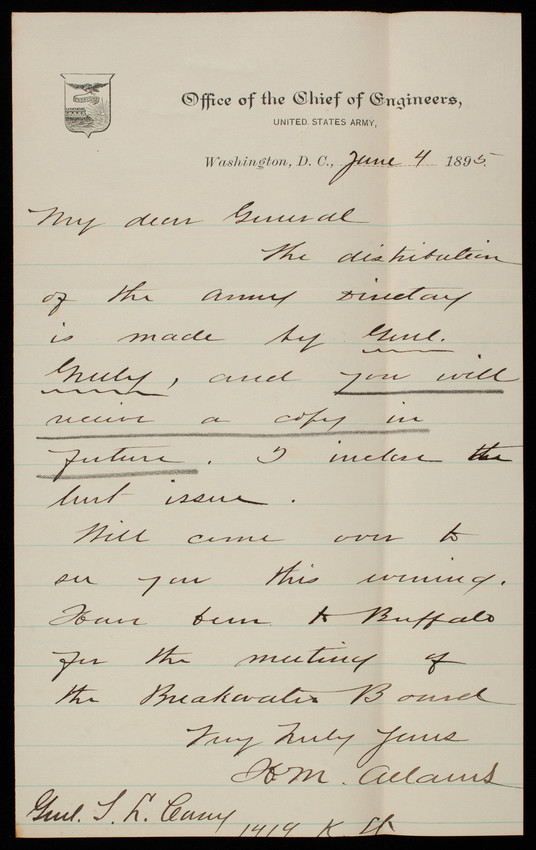 Office of the Chief of Engineers,
UNITED STATES ARMY,
Washington, D. C., June 4 1895.
My dear General
The distribution
of the Army Directory
is made by Genl.
Greely, and you will
receive a copy in
future. I inclose the
last issue.
Will come over to
see you this evening.
Have been to Buffalo
for the meeting of
the Breakwater Board
Very truly yours
H M. Adams
Genl. T. L. Casey
1419 K. St